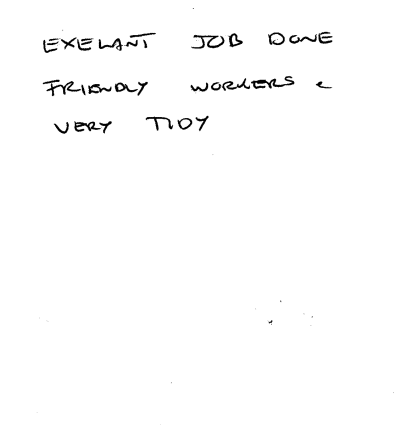 EXELANT JOB DONE
FRIENDLY WORKERS &
VERY TIDY